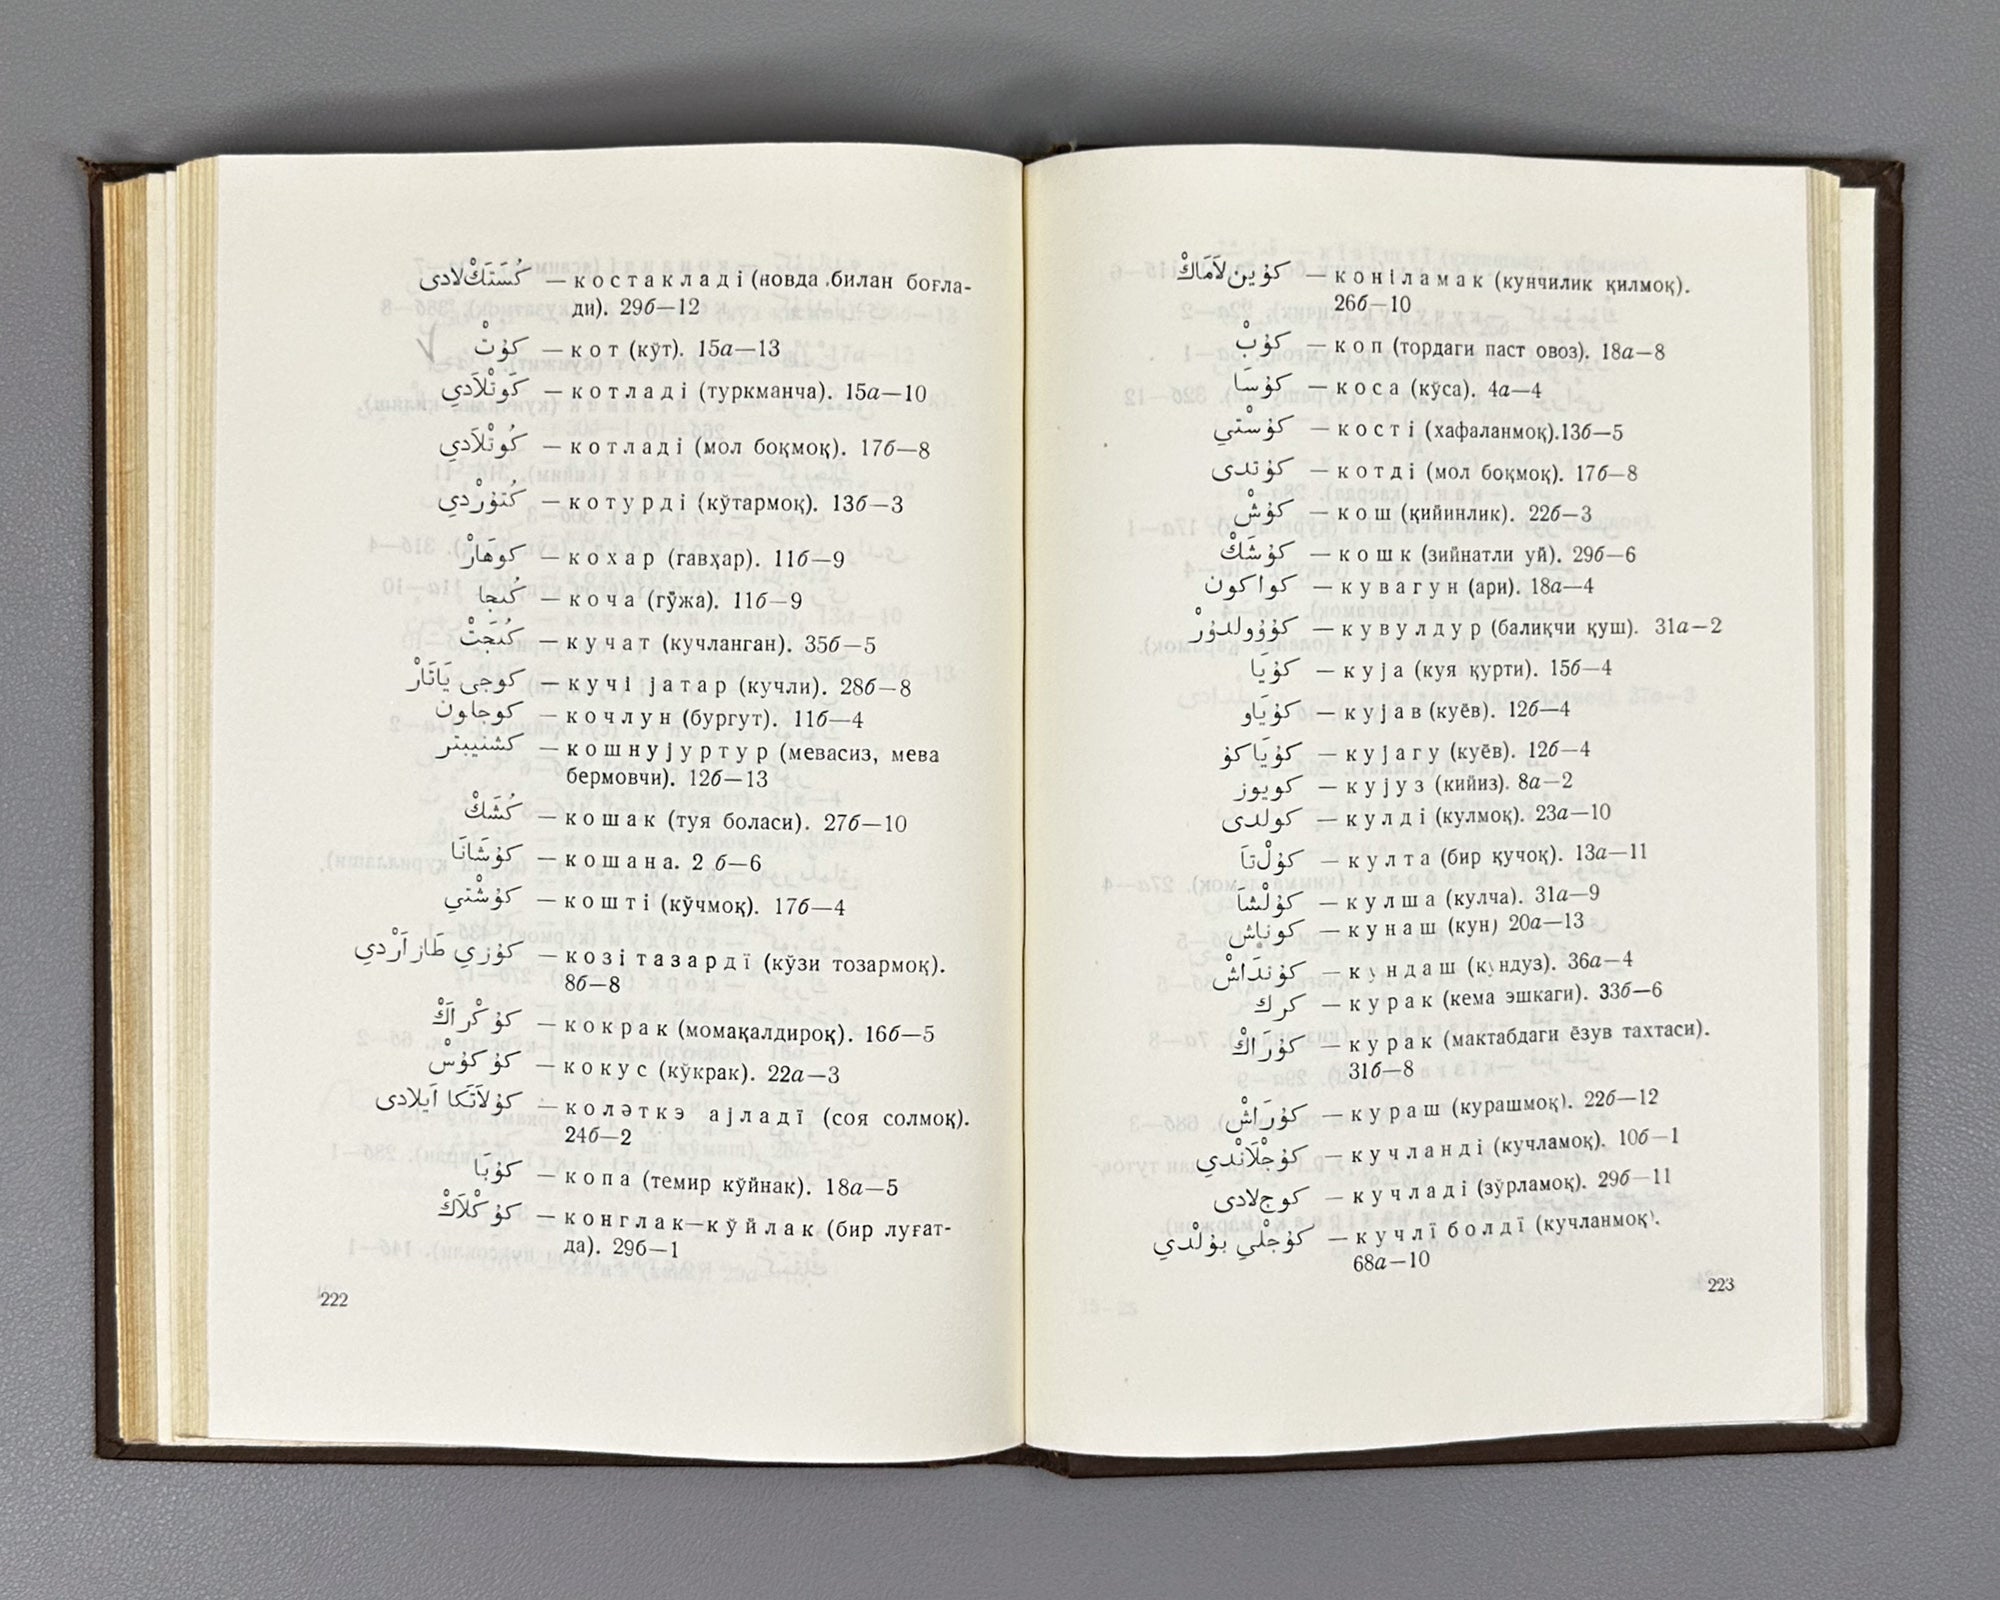 كُسْتَكْلادى — костакладі (новда билан боғла-
ди). 29б—12
كۇتْ — кот (кўт). 15а—13
كَوتْلَادي — котладі (туркманча). 15а—10
كُوتْلَادي — котладі (мол боқмоқ). 17б—8
كُتۇرْدي — котурді (кўтармоқ). 13б—3
كوهَارْ — кохар (гавҳар). 11б—9
كُنجا — коча (гўжа). 11б—9
كُنجَتْ — кучат (кучланган). 35б—5
كوجى يَاتَارْ — кучі јатар (кучли). 28б—8
كوجلون — кочлун (бургут). 11б—4
— кошнујуртур (мевасиз, мева
бермовчи). 12б—13
كُشَكْ — кошак (туя боласи). 27б—10
كۇشَانَا — кошана. 2 б—6
كۇشْتي — кошті (кўчмоқ). 17б—4
كۇزي طَازاَرْدي — козі тазардї (кўзи тозармоқ).
8б—8
كۇكْراَكْ — кокрак (момақалдироқ). 16б—5
كۇكۇسْ — кокус (кўкрак). 22а—3
كۇلَاتَكا اَيلادى — коләткэ ајладї (соя солмоқ).
24б—2
كۇبَا — копа (темир кўйнак). 18а—5
كۇكْلَاكْ — конглак—кўйлак (бир луғат-
да). 29б—1
222
كۇين لَامَاكْ — коніламак (кунчилик қилмоқ).
26б—10
كۇبْ — коп (тордаги паст овоз). 18а—8
كۇسَا — коса (кўса). 4а—4
كۇسْتي — кості (хафаланмоқ).13б—5
كۇتدى — котді (мол боқмоқ). 17б—8
كۇشْ — кош (қийинлик). 22б—3
كۇشَكْ — кошк (зийнатли уй). 29б—6
كواكون — кувагун (ари). 18а—4
كۇۇولدۇرْ — кувулдур (балиқчи қуш). 31а—2
كۇيَا — куја (куя қурти). 15б—4
كۇيَاو — кујав (куёв). 12б—4
كۇيَاكۇ — кујагу (куёв). 12б—4
كويوز — кујуз (кийиз). 8а—2
كولدى — кулді (кулмоқ). 23а—10
كۇلْتَا — култа (бир қучоқ). 13а—11
كۇلْشَا — кулша (кулча). 31а—9
كوناش — кунаш (кун) 20а—13
كۇندَاشْ — кундаш (кундуз). 36а—4
كرك — курак (кема эшкаги). 33б—6
كۇرَاكْ — курак (мактабдаги ёзув тахтаси).
31б—8
كۇرَاشْ — кураш (курашмоқ). 22б—12
كۇجْلَانْدي — кучланді (кучламоқ). 10б—1
كوجلادى — кучладі (зўрламоқ). 29б—11
كۇجْلي بۇلْدي — кучлї болдї (кучланмоқ).
68а—10
223